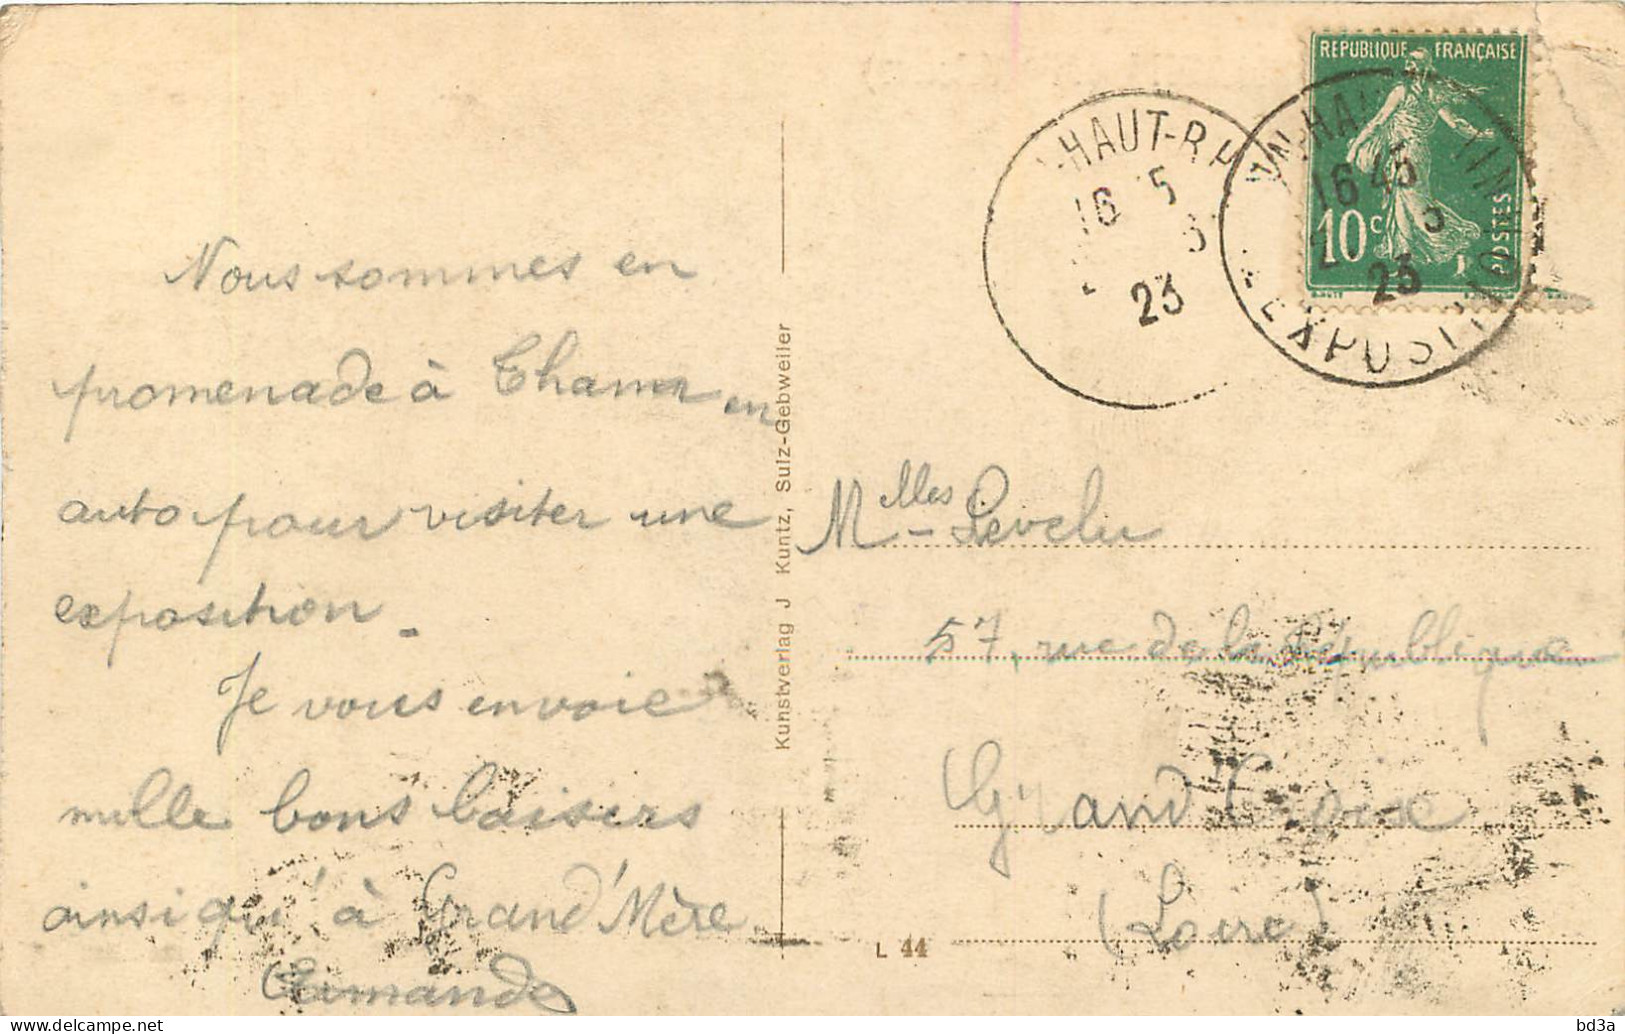 Nous sommes en
promenade à Thann en
auto pour visiter une
exposition.
Je vous envoie
mille bons baisers
ainsi qu'à Grand'Mère
Armande
Kunstverlag J Kuntz, Sulz-Gebweiler
REPUBLIQUE FRANÇAISE
10c
POSTES
HAUT-RH
16 5
3
23
16 45
2 3
23
EXPOSITION
Mlles Levelu
57, rue de la République
Grand Croix
(Loire)
L 44
bd3a